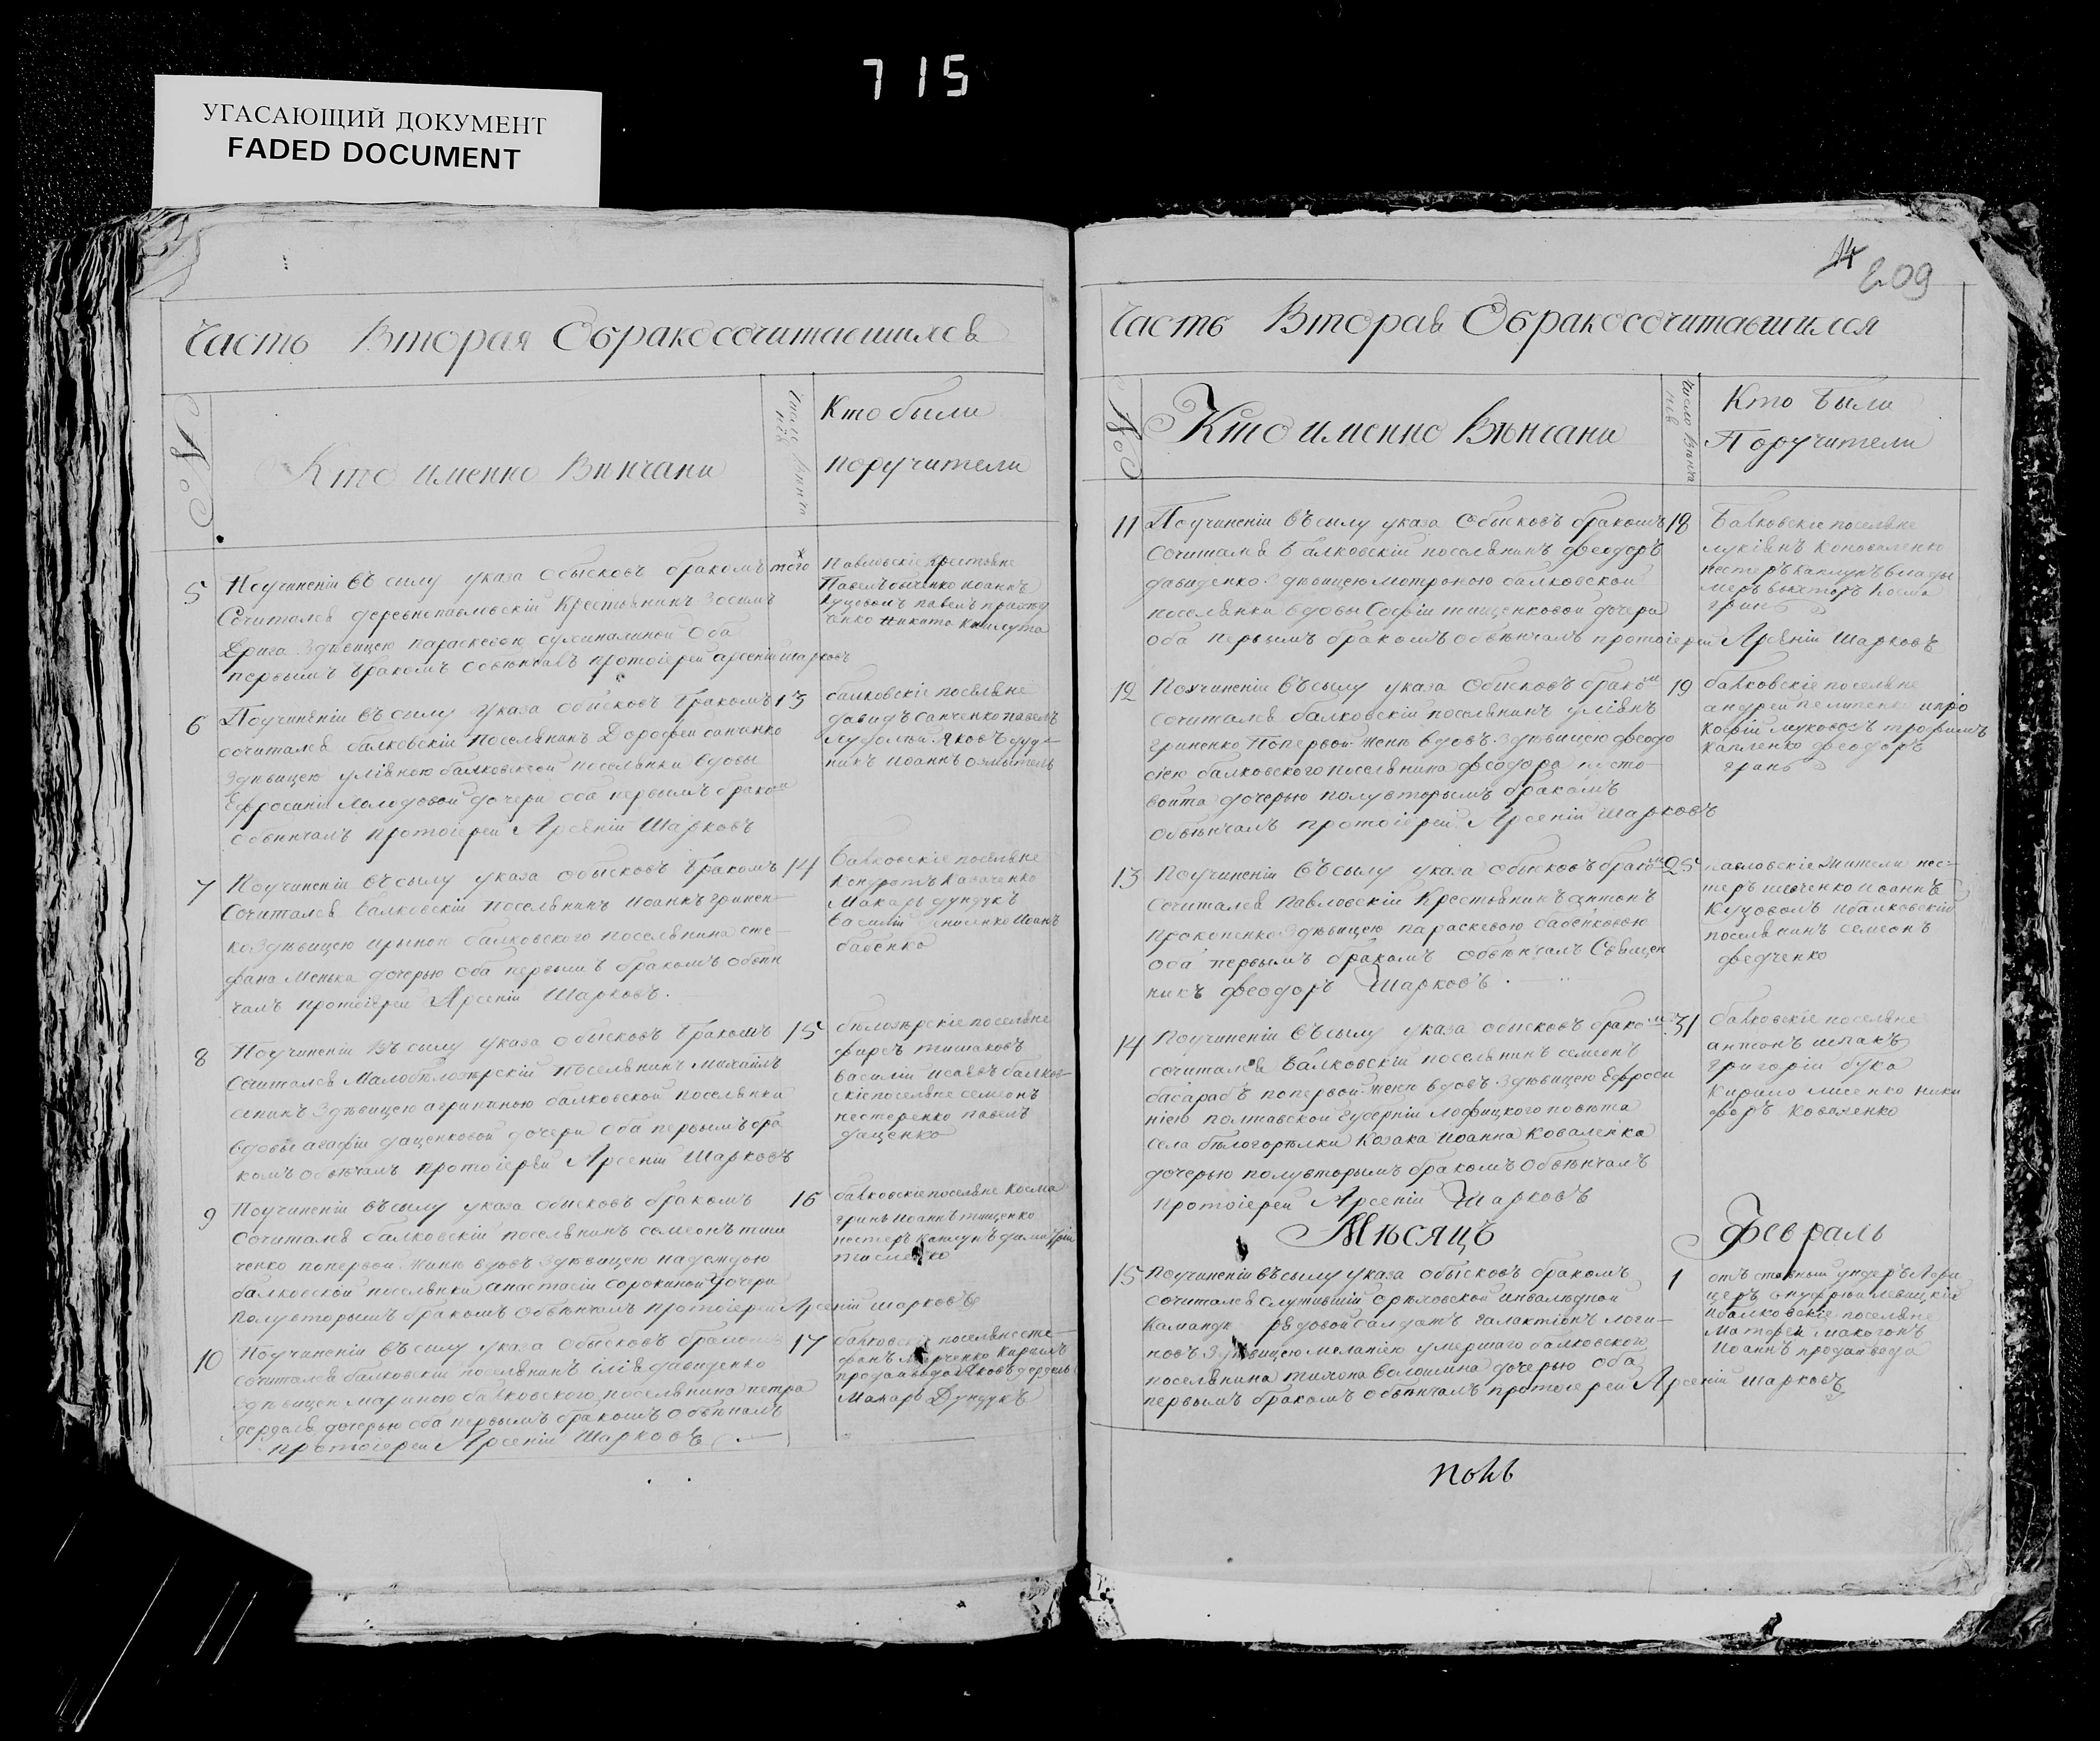 715
УГАСАЮЩИЙ ДОКУМЕНТ
FADED DOCUMENT
Часть Вторая Обракосочитавшихся
№
Кто именно Вѣнчани
Число Вѣнча
нія
Кто были
поручители
5
Поучиненіи въ силу указа обысковъ бракомъ
того
Сочитался деревнепавловскій Крестьянинъ Зосимъ
Дрига Здѣвицею параскевою сухиналиной Оба
первымъ бракомъ обвенчалъ протоіерей арсеній шарковъ
Павловскіе Крестьяне
Никита
6
Поучиненіи въ силу указа обысковъ бракомъ
13
сочитался балковскій поселянинъ Дорофей санченко
Здѣвицею уліяною балковской поселянки вдовы
Ефросиніи Молодовой дочери оба первымъ бракомъ
обвѣнчалъ протоіерей Арсеній Шарковъ
балковскіе поселяне
давидъ санченко павелъ
яковъ дуд-
никъ иоаннъ
7
Поучиненіи въ сылу указа обысковъ бракомъ
14
Сочитался балковскій поселянинъ иоаннъ гринен-
ко Здѣвицею ириною балковского поселянина сте-
фана Менька дочерью Оба первымъ бракомъ обвѣн
чалъ протоіерей Арсеній Шарковъ.
балковскіе поселяне
Кондратъ Казаченко
Макаръ дундукъ
Василій Иоанъ
бабенко
8
Поучиненіи въ сылу указа обысковъ бракомъ
15
Сочитался Малобѣлозѣрскій поселянинъ михаилъ
Здѣвицею агрипиною балковской поселянки
вдовы агафіи даценковой дочери Оба первымъ бра
комъ обвѣнчалъ протоіерей Арсеній Шарковъ
бѣлозѣрскіе поселяне
фирсъ тимаковъ
василій исаевъ балков-
скіе поселяне семеонъ
нестеренко павелъ
даценко
9
Поучиненіи въ сылу указа обысковъ бракомъ
16
Сочитался балковскій поселянинъ семеонъ тищ
ченко попервой жене вдовъ Здѣвицею надеждою
балковской поселянки анастасіи сорокиной дочери
Полувторымъ бракомъ обвѣнчалъ протоіерей Арсеній шарковъ
балковскіе поселяне Косма
гринь иоаннъ тищенко
нестеръ каплунъ
10
Поучиненіи въ сылу указа обысковъ бракомъ
17
Сочитался балковскій поселянинъ ілія давиденко
Здѣвицею мариною балковского поселянина петра
дердаля дочерью оба первымъ бракомъ обвѣнчалъ
протоіерей Арсеній Шарковъ
балковскіе поселяне сте-
фанъ Марченко Кирилъ
продайвода яковъ дердаль
Макаръ Дундукъ
14
209
Часть Вторая Обракосочитавшихся
№
Кто именно Вѣнчани
Число Вѣнча
нія
Кто были
Поручители
11
Поучиненіи въ силу указа обысковъ бракомъ
18
сочитался балковскій поселянинъ феодоръ
давиденко Здѣвицею мотроною балковской
поселянки вдовы Софіи тищенковой дочери
оба первымъ бракомъ обвѣнчалъ протоіерей Арсеній Шарковъ
Балковскіе поселяне
лукіянъ Коноваленко
нестеръ каплунъ влады
меръ Косма
гринь
12
Поучиненіи въ сылу указа обысковъ бракомъ
19
сочитался балковскій поселянинъ уліянъ
гриненко Попервой жене вдовъ Здѣвицею феодо
сіею балковского поселянина феодора пусто
войта дочерью полувторымъ бракомъ
Обвѣнчалъ протоіерей Арсеній Шарковъ
балковскіе поселяне
андрей пелипенко ипро
кофій трофимъ
капленко феодоръ
грань
13
Поучиненіи въ сылу указа обысковъ бракомъ
25
сочитался павловскій Крестьянинъ антонъ
Прокопенко Здѣвицею параскевою бабенковою
Оба первымъ бракомъ обвѣнчалъ Священ
никъ феодоръ Шарковъ.
павловскіе жители нес-
теръ шевченко иоаннъ
Куцоволъ ибалковскій
поселянинъ семеонъ
федченко
14
Поучиненіи въ сылу указа обысковъ бракомъ
31
сочитался балковскій поселянинъ семеонъ
басарабъ попервой жене вдовъ Здѣвицею Ефроси
ніею полтавской губерніи Лофицкого повѣта
села бѣлогорѣлки Козака Иоанна Коваленка
дочерью полувторымъ бракомъ обвѣнчалъ
протоіерей Арсеній Шарковъ
балковскіе поселяне
антонъ шпакъ
григорій бука
Кирило лисенко ники
форъ Коваленко
Мѣсяцъ Февраль
15
Поучиненіи въ сылу указа обысковъ бракомъ
1
сочитался служившій орѣховской инвалидной
Командѣ рядовой салдатъ галактіонъ логи-
новъ Здѣвицею меланіею умершаго балковского
поселянина тихона волошина дочерью оба
первымъ бракомъ обвѣнчалъ протоіерей Арсеній Шарковъ
отъ ставный ундеръ Афи
церъ онуфрій левицкій
ибалковскіе поселяне
Матфей макогонъ
Иоаннъ продайвода